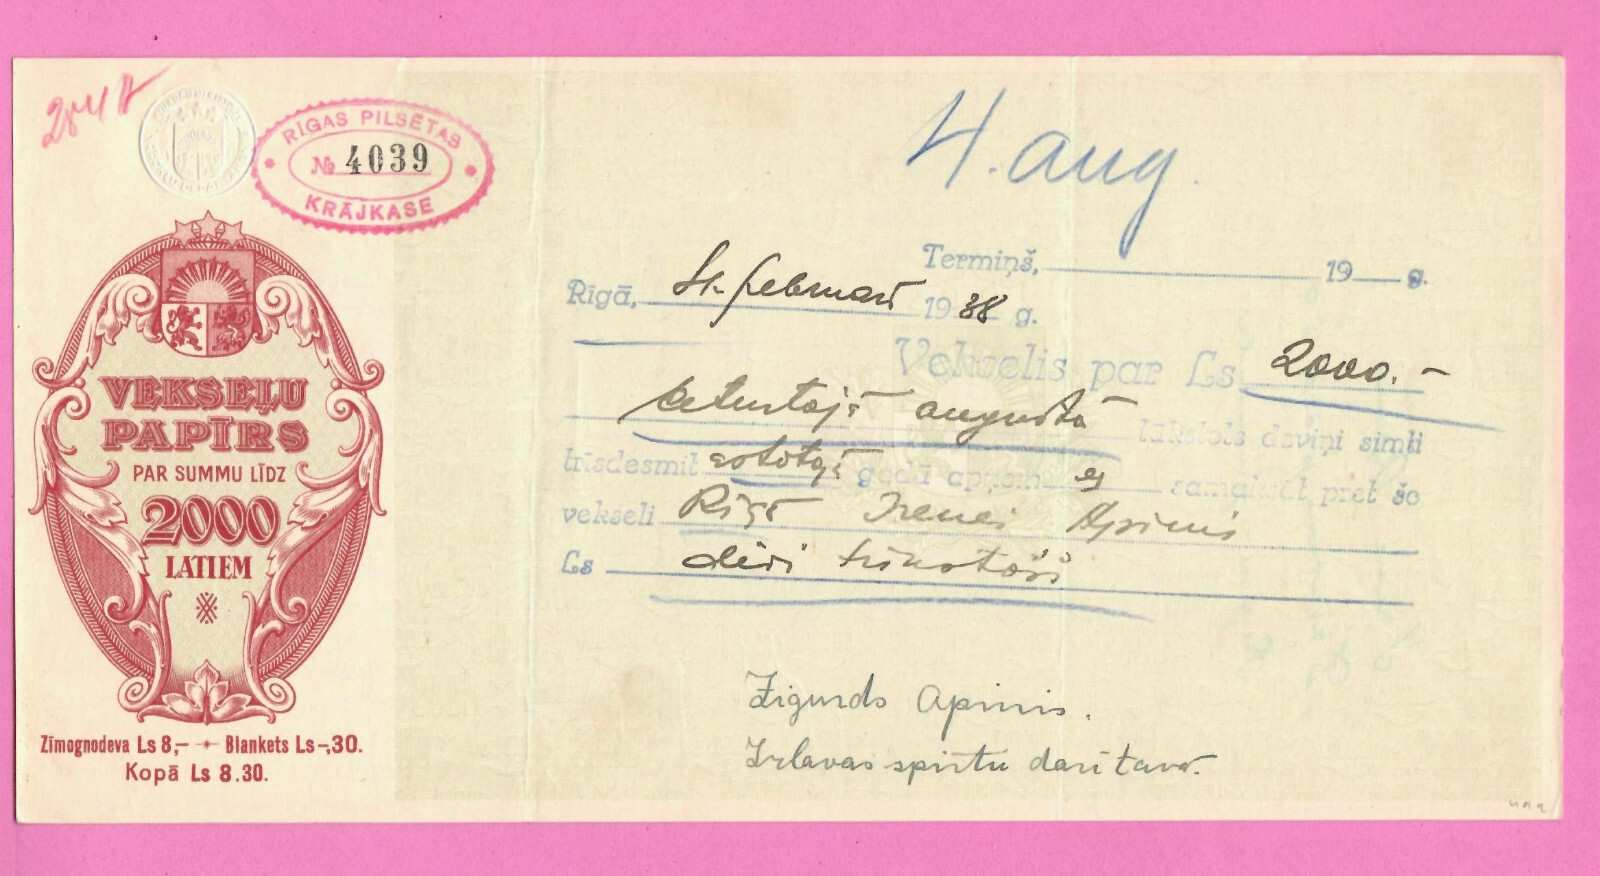 RĪGAS PILSĒTAS
№ 4039
KRĀJKASE
4. aug.
Termiņš, 19 g.
Rīgā, 4. februarī 1938 g.
Vekselis par Ls 2000.-
ceturtajā augustā tūkstots deviņi simti
trīsdesmit astotajā gadā apņem es samaksāt pret šo
vekseli Rīgā Irenei Apinis
Ls divi tūkstoši
Zigurds Apinis.
Irlavas spirtu darītava.
VEKSEĻU
PAPĪRS
PAR SUMMU LĪDZ
2000
LATIEM
Zīmognodeva Ls 8,– Blankets Ls –,30.
Kopā Ls 8.30.